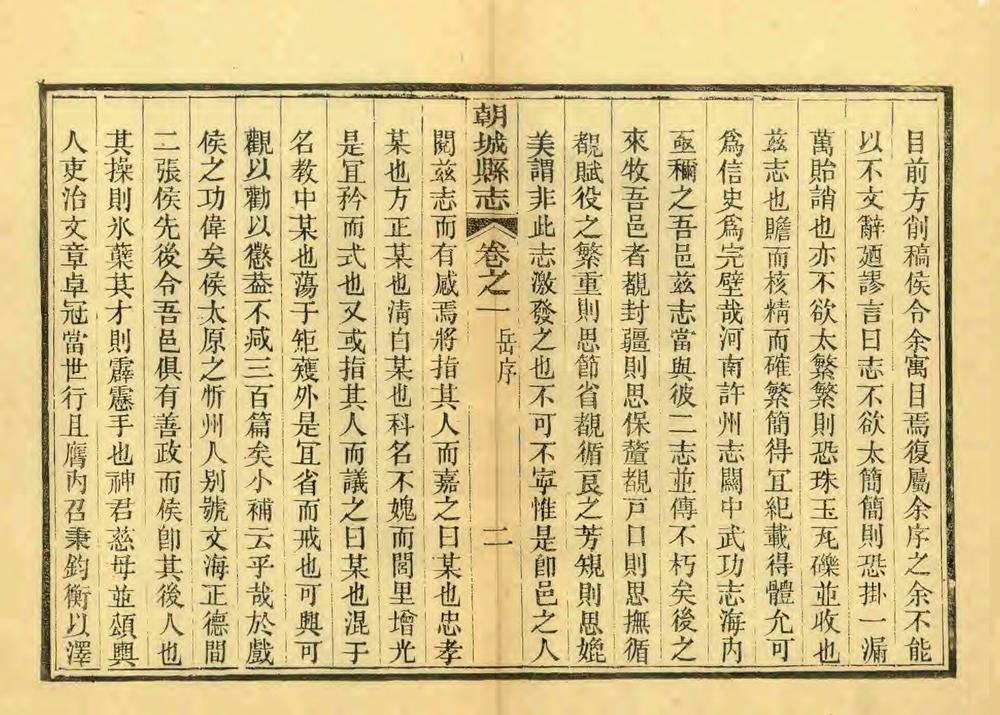 目前方削稿侯令余寓目焉復屬余序之余不能
以不文辭廼謬言曰志不欲太簡簡則恐掛一漏
萬貽誚也亦不欲太繁繁則恐珠玉瓦礫並收也
茲志也贍而核精而確繁簡得宜紀載得體允可
爲信史爲完璧哉河南許州志關中武功志海内
亟稱之吾邑茲志當與彼二志並傳不朽矣後之
來牧吾邑者覩封疆則思保釐覩戸口則思撫循
覩賦役之繁重則思節省覩循良之芳規則思媲
美謂非此志激發之也不可不寧惟是卽邑之人
朝城縣志 卷之一 岳序 二
閱茲志而有感焉將指其人而嘉之曰某也忠孝
某也方正某也淸白某也科名不媿而閭里增光
是宜矜而式也又或指其人而議之曰某也混于
名教中某也蕩于矩矱外是宜省而戒也可興可
觀以勸以懲葢不减三百篇矣小補云乎哉於戲
侯之功偉矣侯太原之忻州人别號文海正德間
二張侯先後令吾邑俱有善政而侯卽其後人也
其操則氷蘗其才則霹靂手也神君慈母並頌輿
人吏治文章卓冠當世行且膺内召秉鈞衡以澤